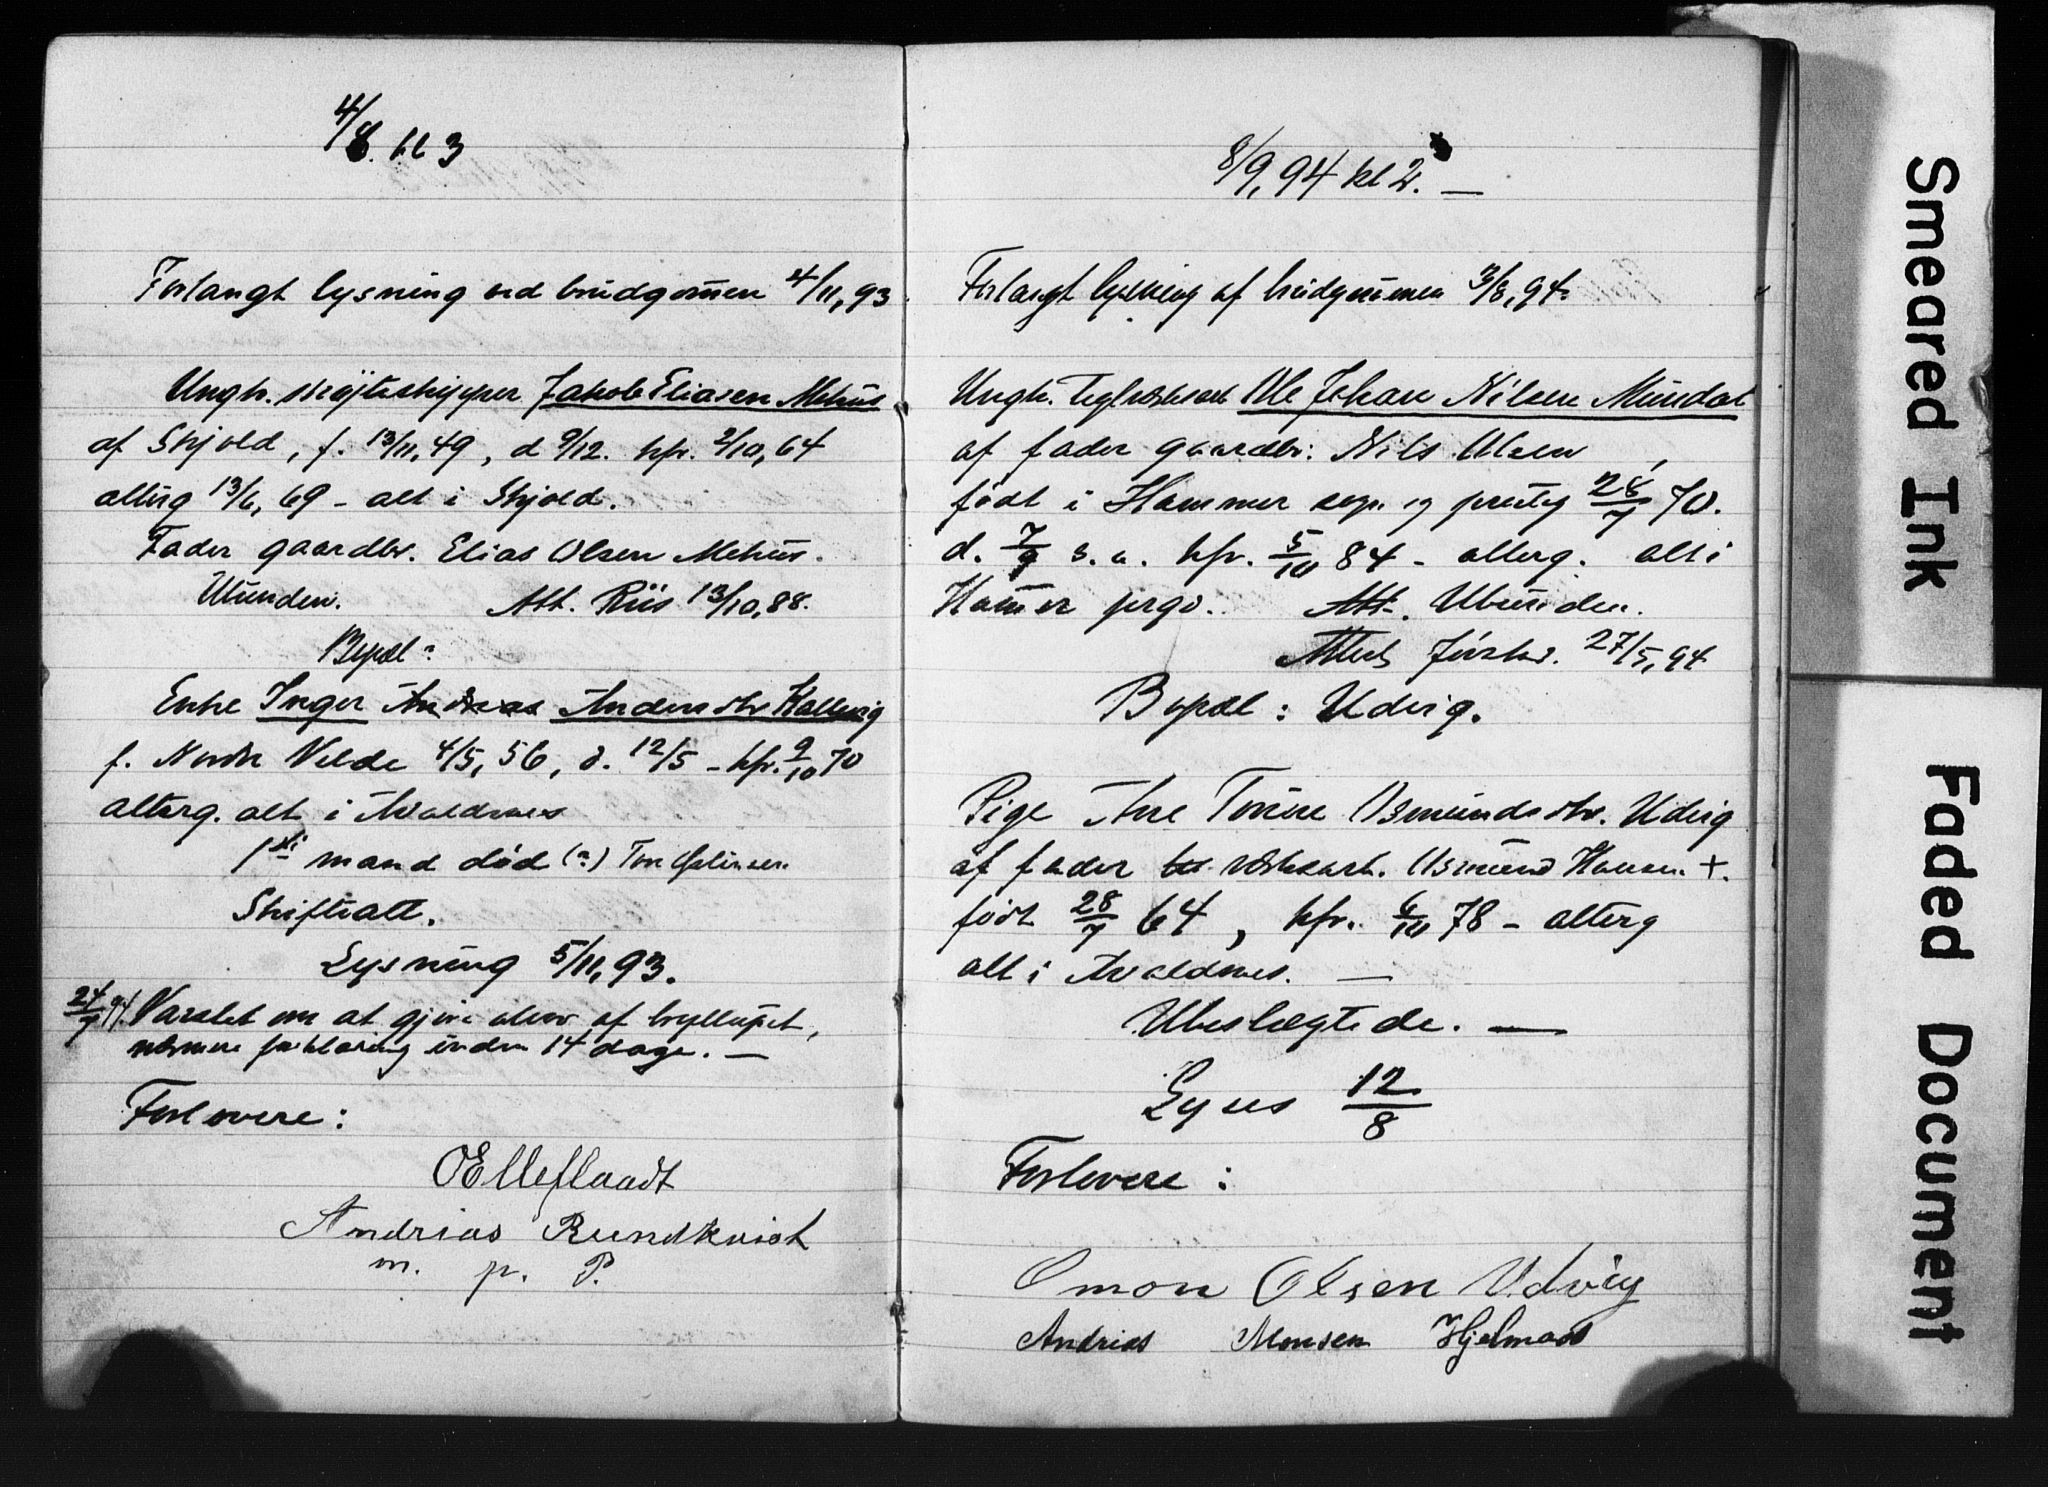 4/8. kl 3
Forlangt lysning ved brudgomen 4/11, 93
Ungk. skøjteskipper Jakob Eliasen Mehus
af Skjold, f. 13/11, 49, d 9/12. kfr. 2/10, 64
alterg 13/6, 69 - alt i Skjold.
Fader gaardbr. Elias Olsen Mehus.
Utunden. Att. Riis 13/10, 88.
Bopæl:
Enke Inger Andreas Andersdtr Kallevig
f. Nordr Velde 4/5, 56, d. 12/5 - kfr. 9/10 70
alterg. alt i Avaldsnes
1ste mand død (?) Tor
Skifteatt.
Lysning 5/11, 93.
24/7 94. Varslet om at gjøre alvor af bryllupet,
nærmere forklaring inden 14 dage. —
Forlovere:
OElleflaadt
Andrias Rundkvist
m. p. P.
8/9, 94 kl 2. —
Forlangt lysning af brudgommen 3/8, 94.
Ungk. teglverksarb Ole Johan Nilsen Mundal
af fader gaardbr: Nils Olsen
født i Hammer sogn og prestg 28/7 70.
d. 7/9 s. a. kfr. 5/10 84 - alterg. alt i
Hamer prgd. Att. Ubunden.
Attest 27/5, 94
Bopæl: Udvig.
Pige Ane Torine Osmundsdtr. Udvig
af fader verksarb. Osmund Hansen. +.
født 28/7 64, kfr. 6/10 78 - alterg
alt i Avaldsnes. —
Ubeslægtede. —
Lyses 12/8
Forlovere:
Omon Olsen Udvig
Andrias Monsen Hjelmaas
Smeared Ink
Faded Document